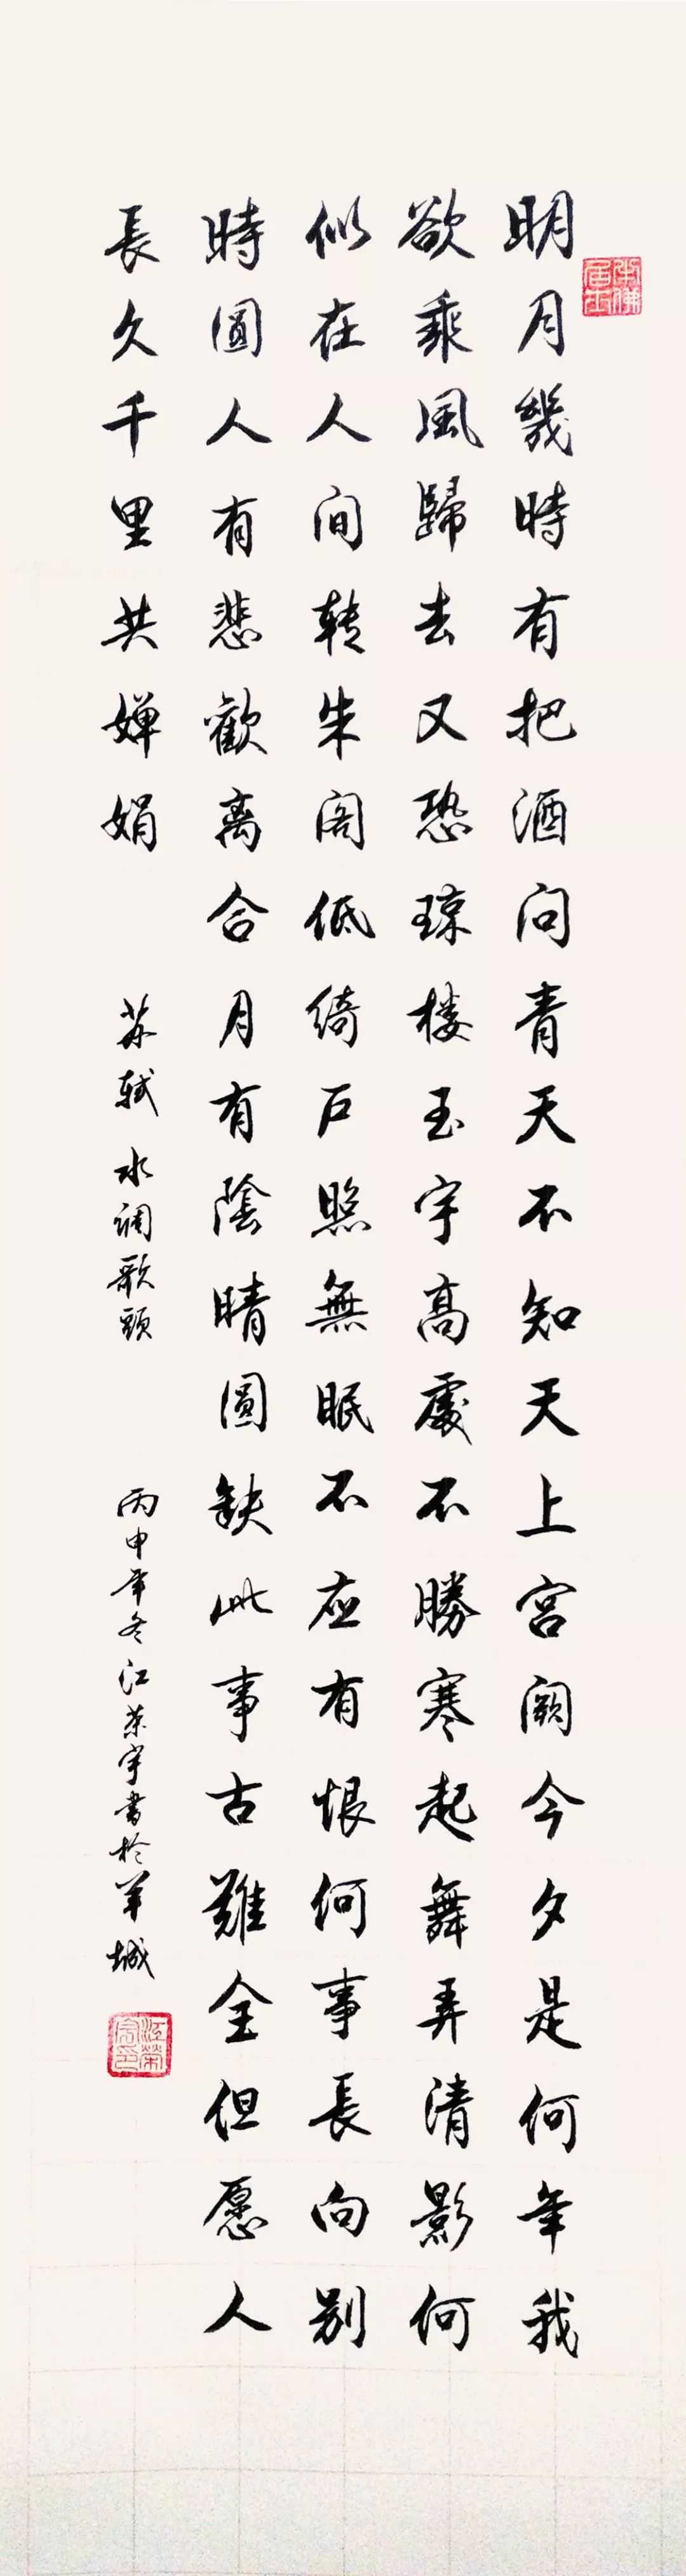 明月幾時有把酒问青天不知天上宫阙今夕是何年我
欲乘風歸去又恐琼楼玉宇高處不勝寒起舞弄清影何
似在人间转朱阁低绮户照無眠不应有恨何事長向别
時圓人有悲歡离合月有陰晴圓缺此事古難全但愿人
長久千里共婵娟
苏轼水调歌頭
丙申年冬江荣宇書於羊城